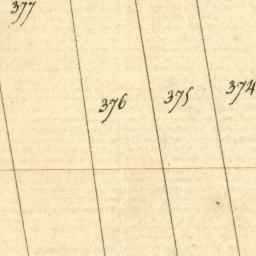 377
376
375
374